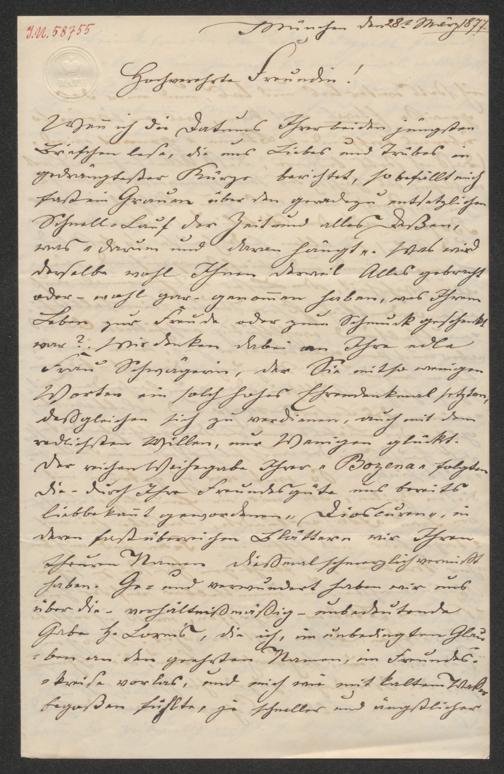 J.N. 58755
München den 28t März 1877.
Hochverehrte Freundin!
Wenn ich die Datums Ihrer beiden jüngsten
Briefchen lese, die uns Liebes und Trübes in
gedrängtester Kürze berichtet, so befällt mich
fast ein Grauen über den geradezu entsetzlichen
Schnell-Lauf der Zeit und alles Deßen,
was „darum und daran hängt“. Was wird
derselbe wohl Ihnen derweil Alles gebracht
oder – wohl gar – genommen haben, was Ihrem
Leben zur Freude oder zum Schmuck geschenkt
war? Wir denken dabei an Ihre edle
Frau Schwägerin, der Sie mit so wenigen
Worten ein solch hohes Ehrendenkmal setzten,
desgleichen sich zu verdienen, auch mit dem
redlichsten Willen, nur Wenigen glückt.
Der reichen Weihegabe Ihrer „Bozena“ folgten
die – durch Ihre Freundesgüte uns bereits
liebbekannt gewordenen „Dioscuren“, in
deren fast überreichen Blättern wir Ihren
theuren Namen dießmal schmerzlich vermißt
haben. Ge- und verwundert haben wir uns
über die – verhältnißmäßig – unbedeutende
Gabe H. Lorm's, die ich, im unbedingten Glau-
ben an den geehrten Namen, im Freundes-
kreise vorlas, und mich wie mit kaltem Waßer
begoßen fühlte, je schneller und ängstlicher